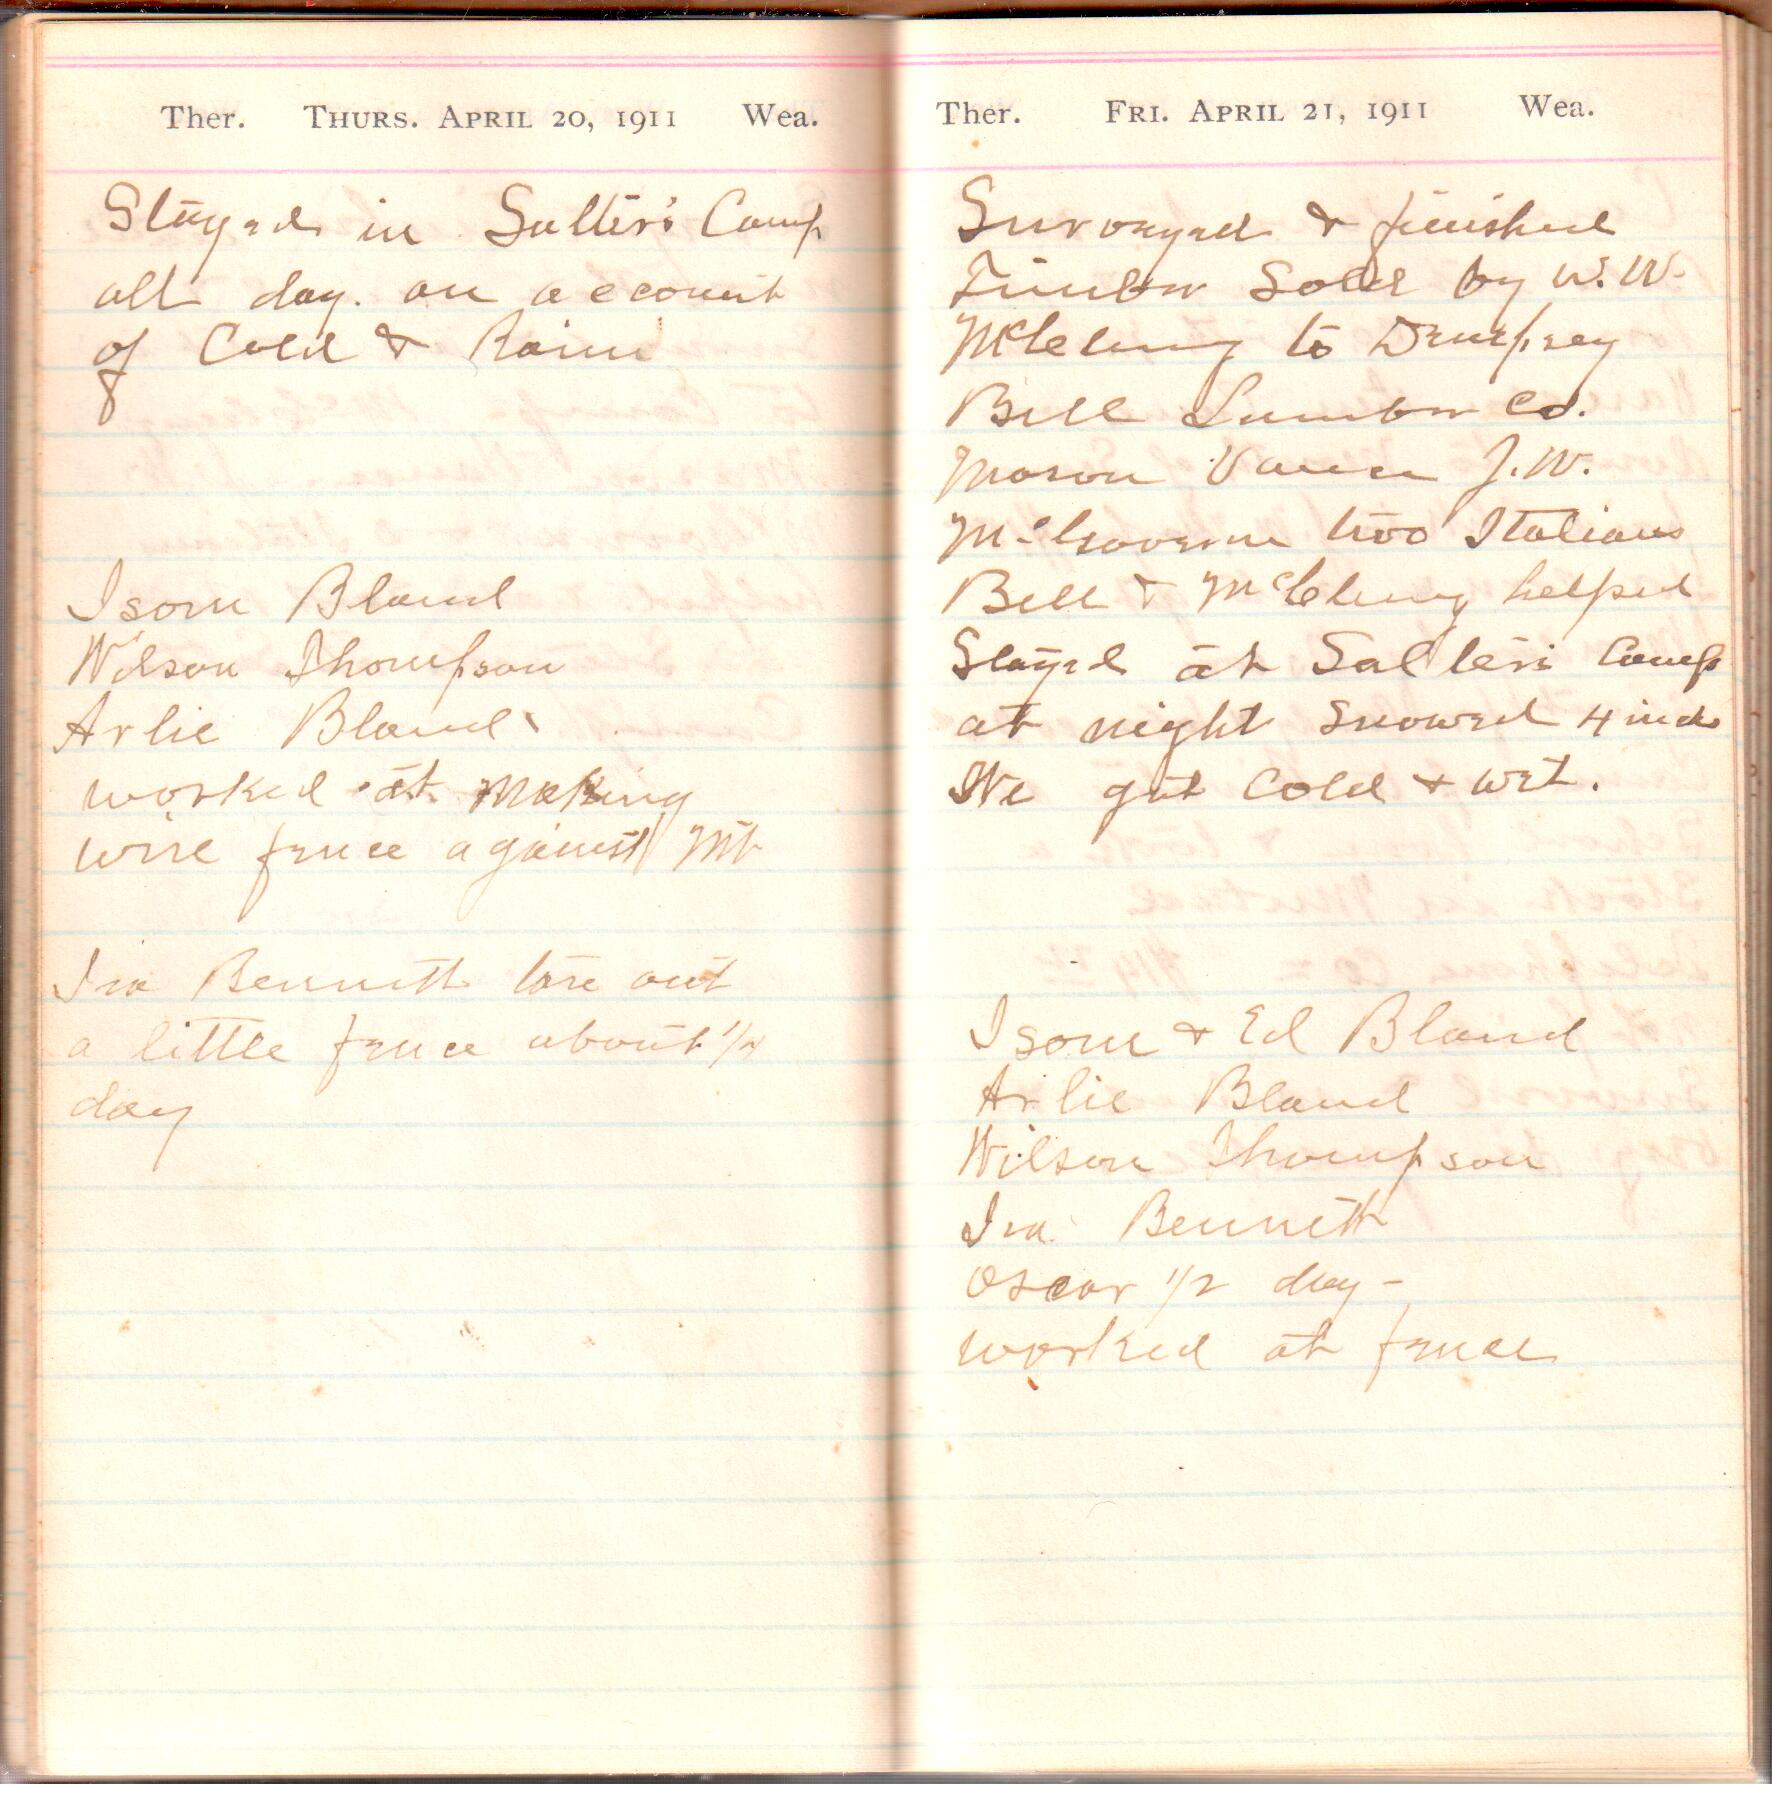 Ther. THURS. APRIL 20, 1911 Wea.
Stayed in Salter's Camp
all day. on account
of Cold & Rain
Isom Bland
Wilson Thompson
Arlie Bland
worked at making
wire fence against Mt
Ira Bennett tore out
a little fence about
day
Ther. FRI. APRIL 21, 1911 Wea.
Surveyed & finished
Timber Sold by W. W.
McClung to Dempsey
Bell Lumber Co.
Mason Vance J. W.
McGovern two Italians
Bell & McClung helped
Stayed at Salters Camp
at night Snowed 4 inch
We got Cold & wet.
Isom & Ed Bland
Arlie Bland
Wilson Thompson
Ira Bennett
Oscar 1/2 day -
worked at fence